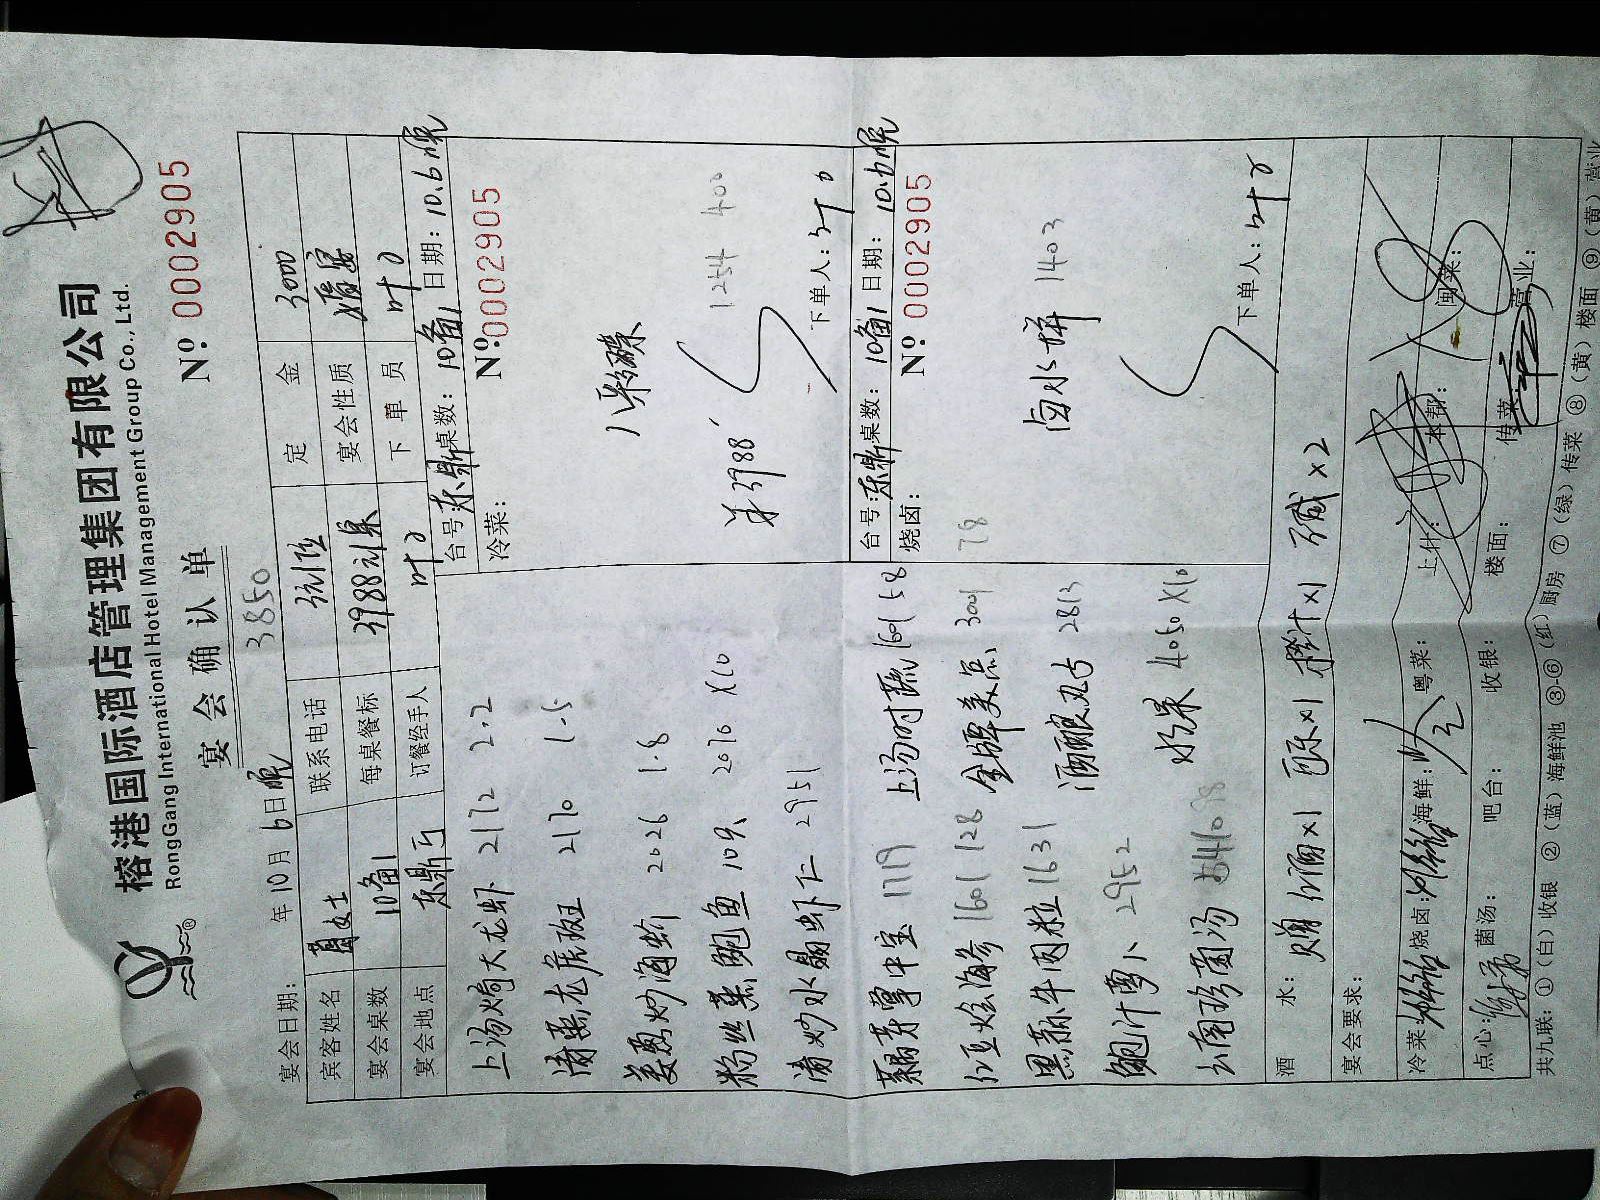 榕港国际酒店管理集团有限公司
RongGang International Hotel Management Group Co., Ltd.
宴会确认单
3850
№: 0002905
宴会日期: 年10月6日晚
宾客姓名 女士 联系电话 定金 3000
宴会桌数 10备1 每桌餐标 3988 宴会性质
宴会地点 东鼎厅 订餐经手人 叶 下单员 叶
台号:东鼎 桌数: 10备1 日期: 10.6晚
冷菜: №: 0002905
八味碟
1254 400
单3988
下单人: 叶
台号:东鼎 桌数: 10备1 日期: 10.6晚
烧卤: 78 №: 0002905
卤水拼 1403
下单人: 叶
上汤焗大龙虾 2172 2.2
清蒸龙虎斑 2170 1.5
姜葱炒海蚧 2026 1.8
粉丝蒸鲍鱼 10只 2070 X10
清炒水晶虾仁 2951
1719
红豆烩海参 1601 128
黑蒜牛肉粒 1631
鲍汁萝卜 2952
云南珍菌汤
上汤时蔬 1601 58
美点 3001
酒酿丸子 2813
水果 4050 X10
酒水: 赠 红酒X1 可乐X1 橙汁X1 X2
宴会要求:
冷菜: 烧卤: 海鲜: 粤菜: 上什: 本帮: 闽菜:
点心: 菌汤: 吧台: 收银: 楼面: 传菜: 营业:
共九联: ①(白)收银 ②(蓝)海鲜池 ③-⑥(红)厨房 ⑦(绿)传菜 ⑧(黄)楼面 ⑨(黄)营业